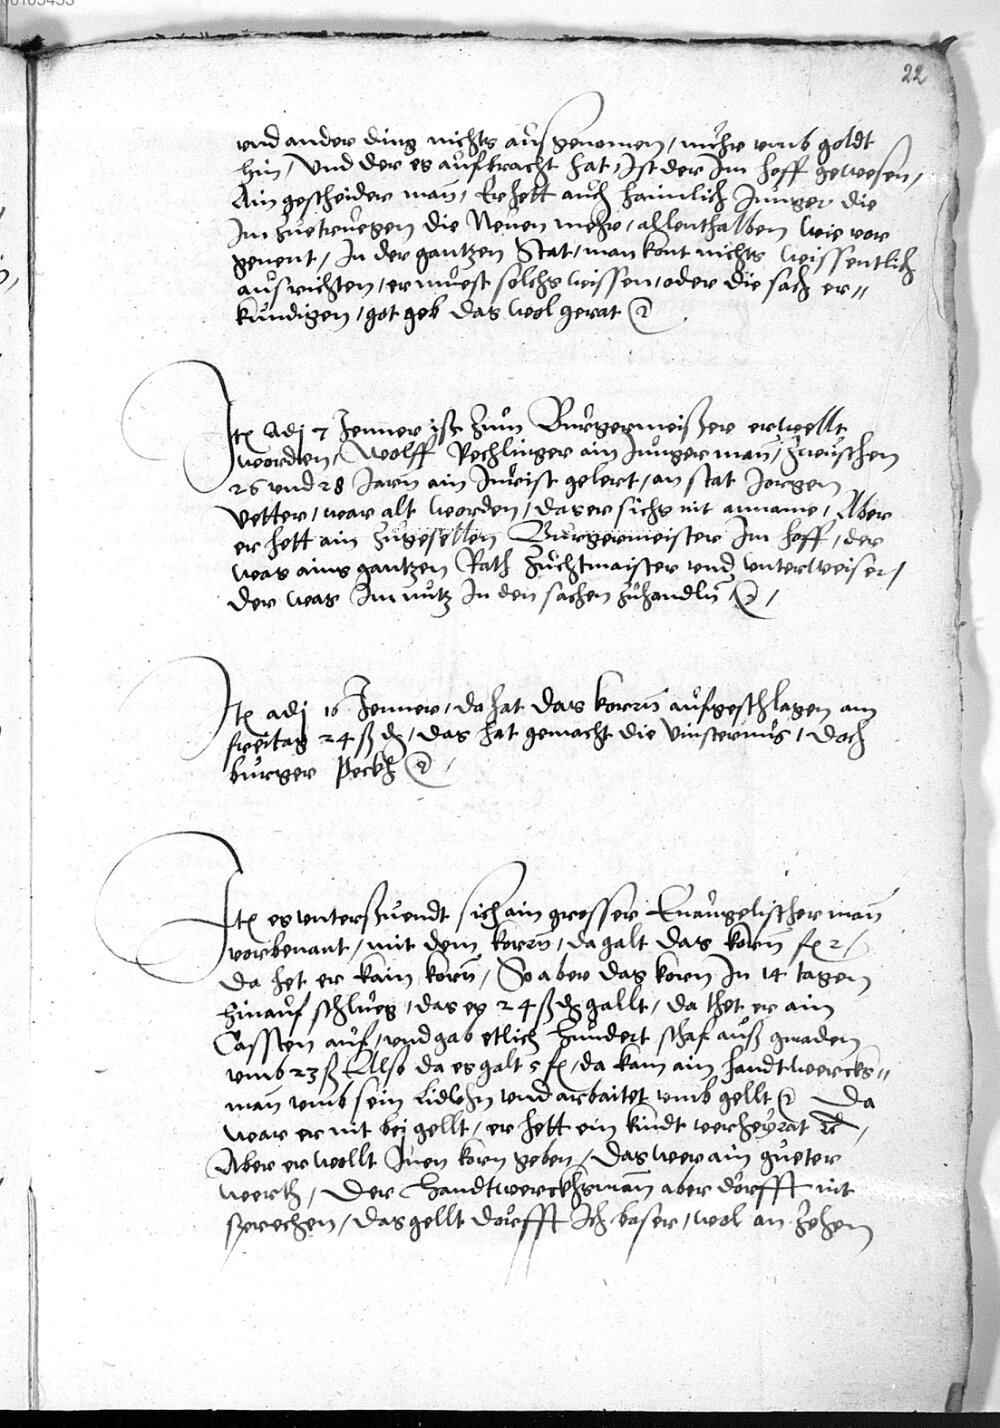 22
vnd ander ding nichts ausgenomen, mehr vmb goldt
hin, Vnd der es aufbracht hat, Ist der Im hoff gewesen,
Ain gescheider man, Er hett auch haimlich Junger die
Im zuetruegen die Neuen mehr, allenthalben wie vor
genent, In der gantzen Stat, man kont nichts wissentlich
ausrichten, er muest solchs wissen, oder die sach er„
kundigen, got geb das wol gerat
Itē Adj 7 Jenner ist zum Burgermeister erwellt
worden, Wolff Rechlinger ain Junger man, zwuschen
26 vnd 28 Jarn ain Jurist gelert, an stat Jorgen
Vetter, war alt worden, das er sichs nit anname, Aber
er hett ain zugesellen Burgermeister Im hoff, der
was ains gantzen Rath zuchtmaister vnd vnterweiser,
der was Im nutz In den sachen zuhandln
Itē adj 16 Jenner, da hat das korn aufgeschlagen am
freitag 24 ß d, das hat gemacht die Vinsternus, doch
burger Peckh
Itē es vnterstuendt sich ain grosser Euangelischer man
vorbenant, mit dem korn, da galt das korn fl 2,
da het er kain korn, So aber das korn In 14 tagen
hinauf schlueg, das es 24 ß d gallt, da thet er ain
Cassten auf, vnd gab etlich hundert schaf auß gnaden
vmb 23 ß Also da es galt 5 fl, da kam ain handtwercks„
man vmb sein Lidlohn vnd arbaitet vmb gellt Da
war er nit bei gellt, er hett ein kindt verheyrat
Aber er wollt Inen korn geben, das wer ain gueter
werth, Der Handtwerckhsman aber dorfft nit
sprechen, das gellt dorfft Ich baser, wol an zehen